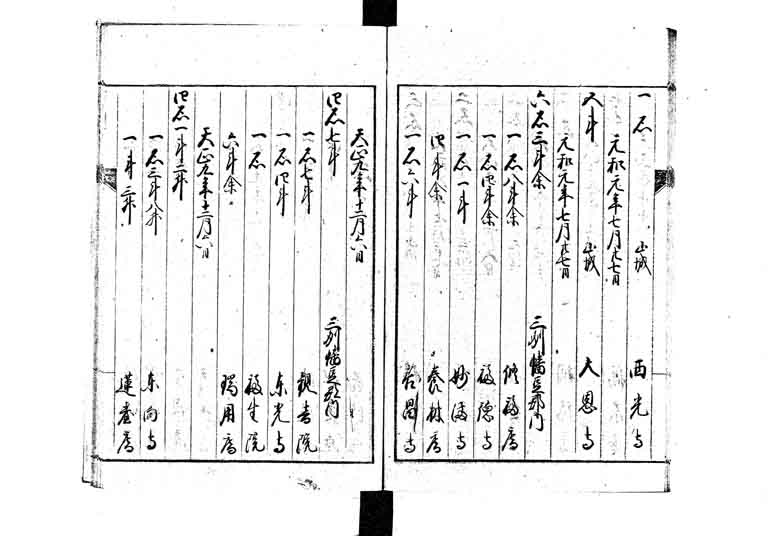 一石 山城 西光寺
元和元年七月廿七日
入斗 山城 大恩寺
元和元年七月廿七日
六石三斗余 三州幡豆郡
一石八斗余 修福庵
一石四斗余 福徳寺
一石一斗 妙満寺
四斗余 泰林庵
一石六斗
天正九年十二月六日
四石七斗 三州幡豆郡
一石七斗 観音院
一石四斗 東光寺
一石 福生院
六斗余 瑞用庵
天正九年十二月六日
四石一斗二升
一石三斗八升 東向寺
一斗三升 蓮台庵